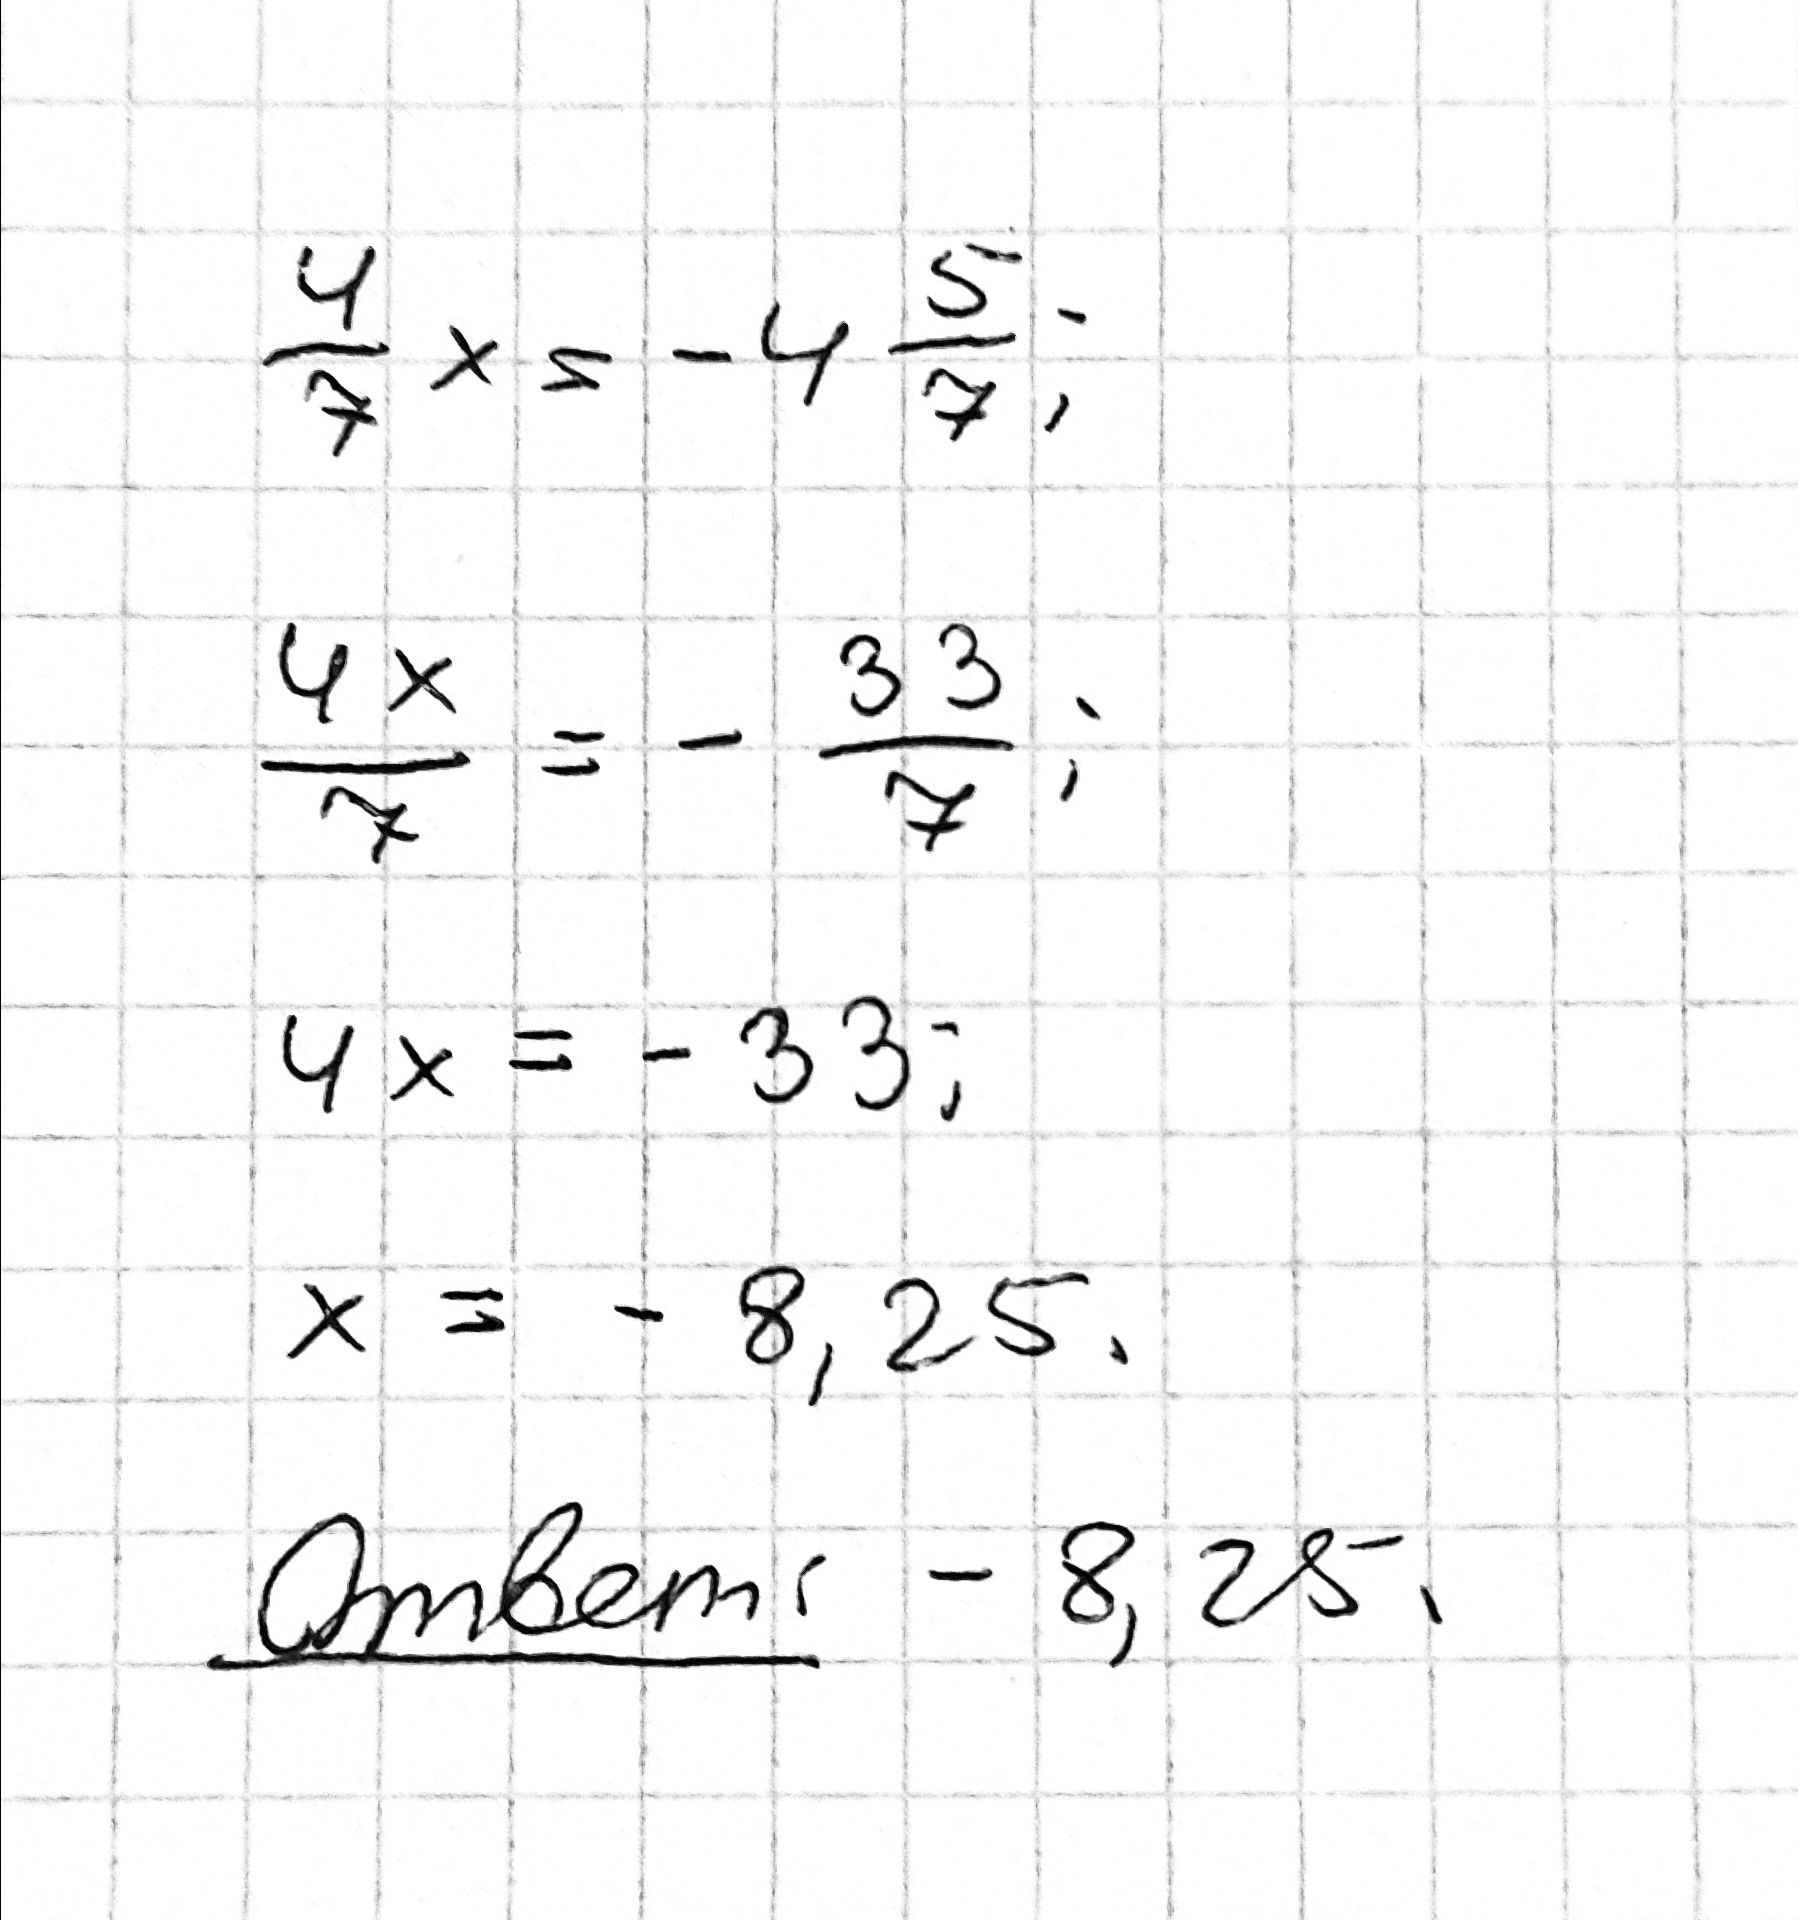 4/7 x = -4 5/7;
4x/7 = - 33/7;
4x = - 33;
x = - 8,25.
Ответ: - 8,25.